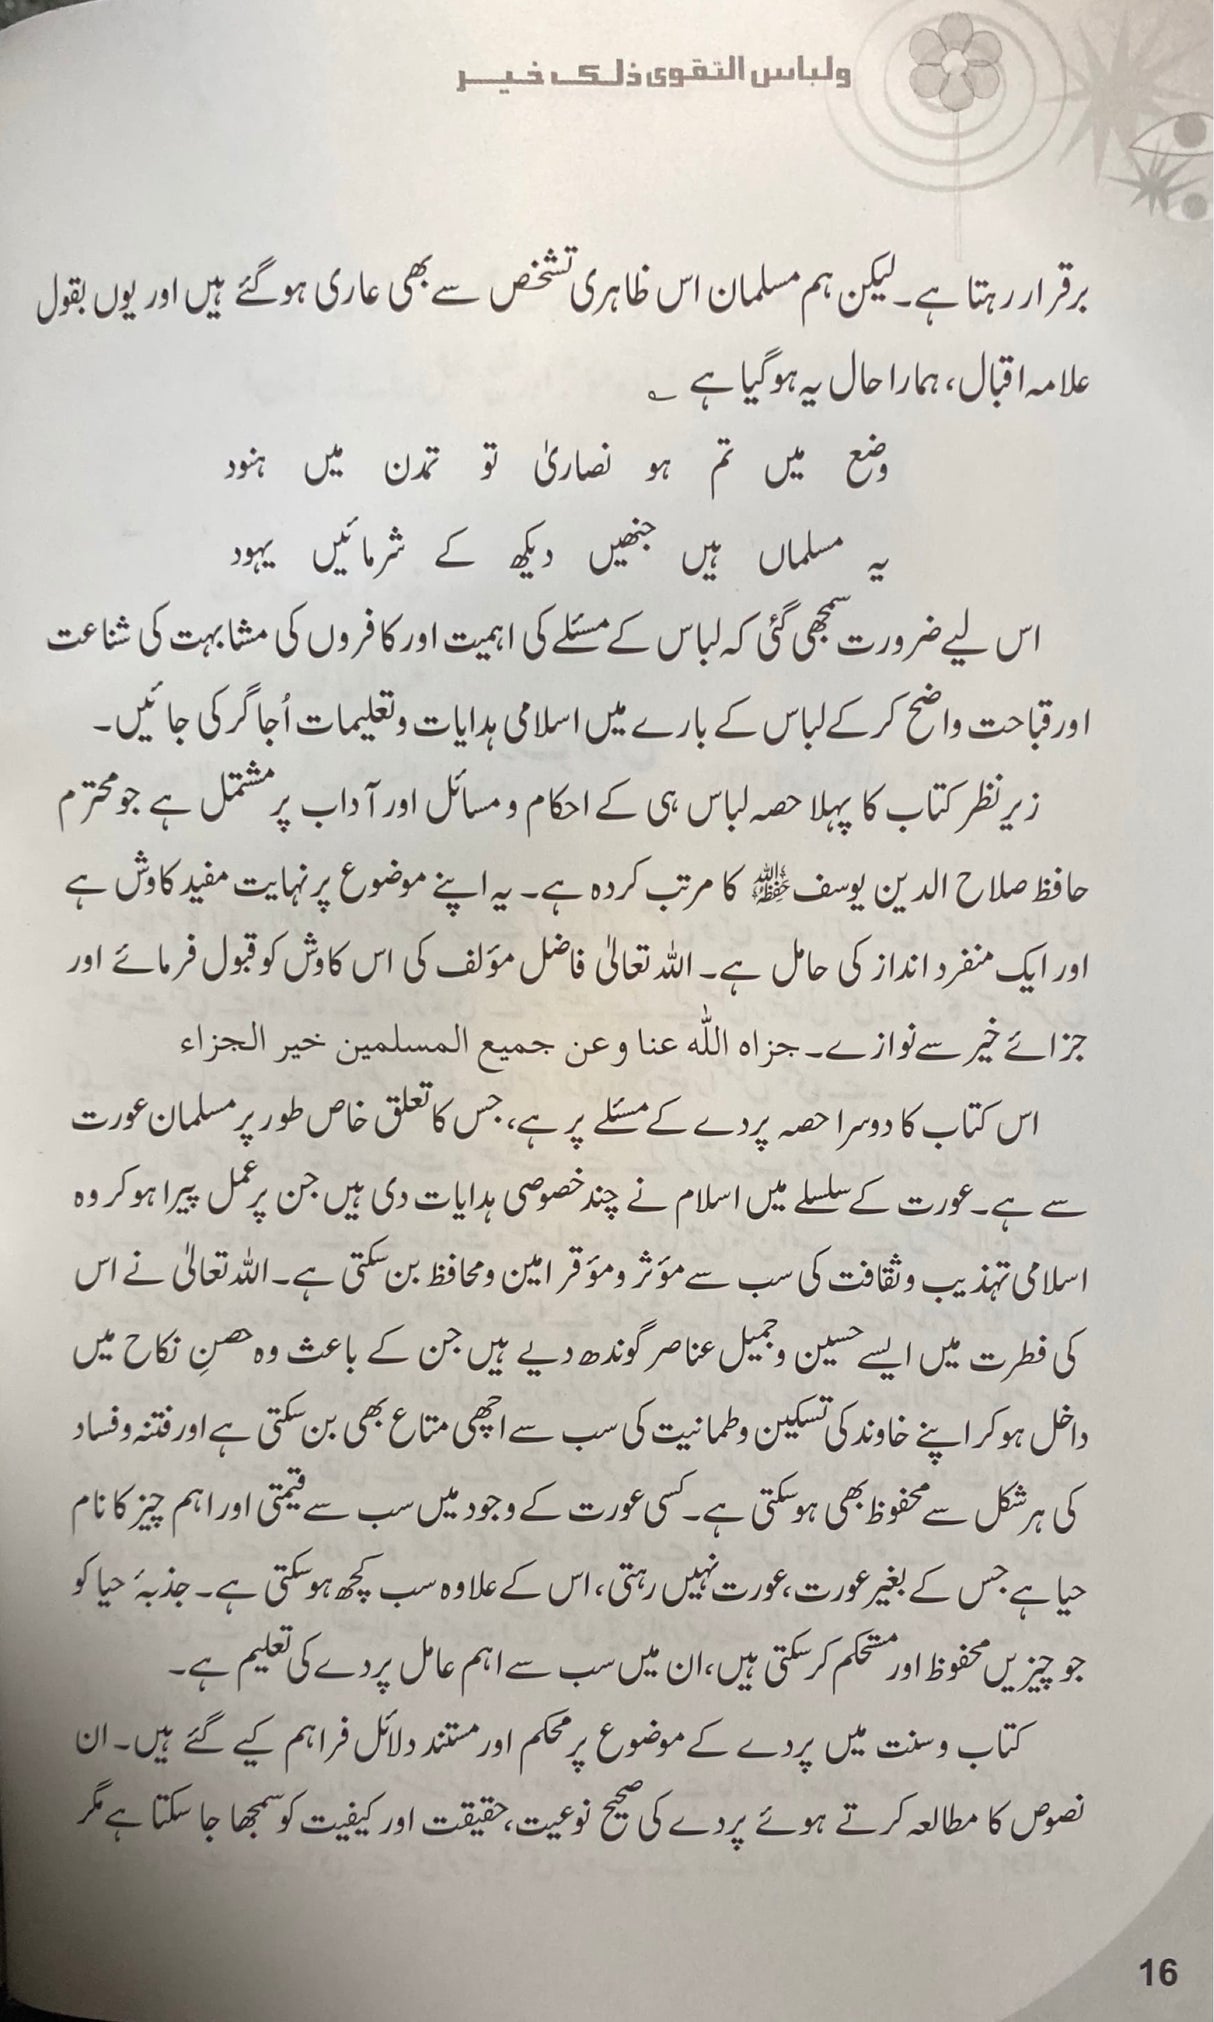 ولباس التقوى ذلك خير
برقرار رہتا ہے۔ لیکن ہم مسلمان اس ظاہری تشخص سے بھی عاری ہو گئے ہیں اور یوں بقول
علامہ اقبال، ہمارا حال یہ ہو گیا ہے ؎
وضع میں تم ہو نصاریٰ تو تمدن میں ہنود
یہ مسلماں ہیں جنھیں دیکھ کے شرمائیں یہود
اس لیے ضرورت سمجھی گئی کہ لباس کے مسئلے کی اہمیت اور کافروں کی مشابہت کی شناعت
اور قباحت واضح کر کے لباس کے بارے میں اسلامی ہدایات و تعلیمات اُجاگر کی جائیں۔
زیر نظر کتاب کا پہلا حصہ لباس ہی کے احکام و مسائل اور آداب پر مشتمل ہے جو محترم
حافظ صلاح الدین یوسف حفظہ اللہ کا مرتب کردہ ہے۔ یہ اپنے موضوع پر نہایت مفید کاوش ہے
اور ایک منفرد انداز کی حامل ہے۔ اللہ تعالیٰ فاضل مؤلف کی اس کاوش کو قبول فرمائے اور
جزائے خیر سے نوازے۔ جزاه اللّٰه عنا وعن جميع المسلمين خير الجزاء
اس کتاب کا دوسرا حصہ پردے کے مسئلے پر ہے، جس کا تعلق خاص طور پر مسلمان عورت
سے ہے۔ عورت کے سلسلے میں اسلام نے چند خصوصی ہدایات دی ہیں جن پر عمل پیرا ہو کر وہ
اسلامی تہذیب و ثقافت کی سب سے مؤثر و مؤقر امین و محافظ بن سکتی ہے۔ اللہ تعالیٰ نے اس
کی فطرت میں ایسے حسین و جمیل عناصر گوندھ دیے ہیں جن کے باعث وہ حصنِ نکاح میں
داخل ہو کر اپنے خاوند کی تسکین و طمانیت کی سب سے اچھی متاع بھی بن سکتی ہے اور فتنہ و فساد
کی ہر شکل سے محفوظ بھی ہو سکتی ہے۔ کسی عورت کے وجود میں سب سے قیمتی اور اہم چیز کا نام
حیا ہے جس کے بغیر عورت، عورت نہیں رہتی، اس کے علاوہ سب کچھ ہو سکتی ہے۔ جذبۂ حیا کو
جو چیزیں محفوظ اور مستحکم کر سکتی ہیں، ان میں سب سے اہم عامل پردے کی تعلیم ہے۔
کتاب و سنت میں پردے کے موضوع پر محکم اور مستند دلائل فراہم کیے گئے ہیں۔ ان
نصوص کا مطالعہ کرتے ہوئے پردے کی صحیح نوعیت، حقیقت اور کیفیت کو سمجھا جا سکتا ہے مگر
16